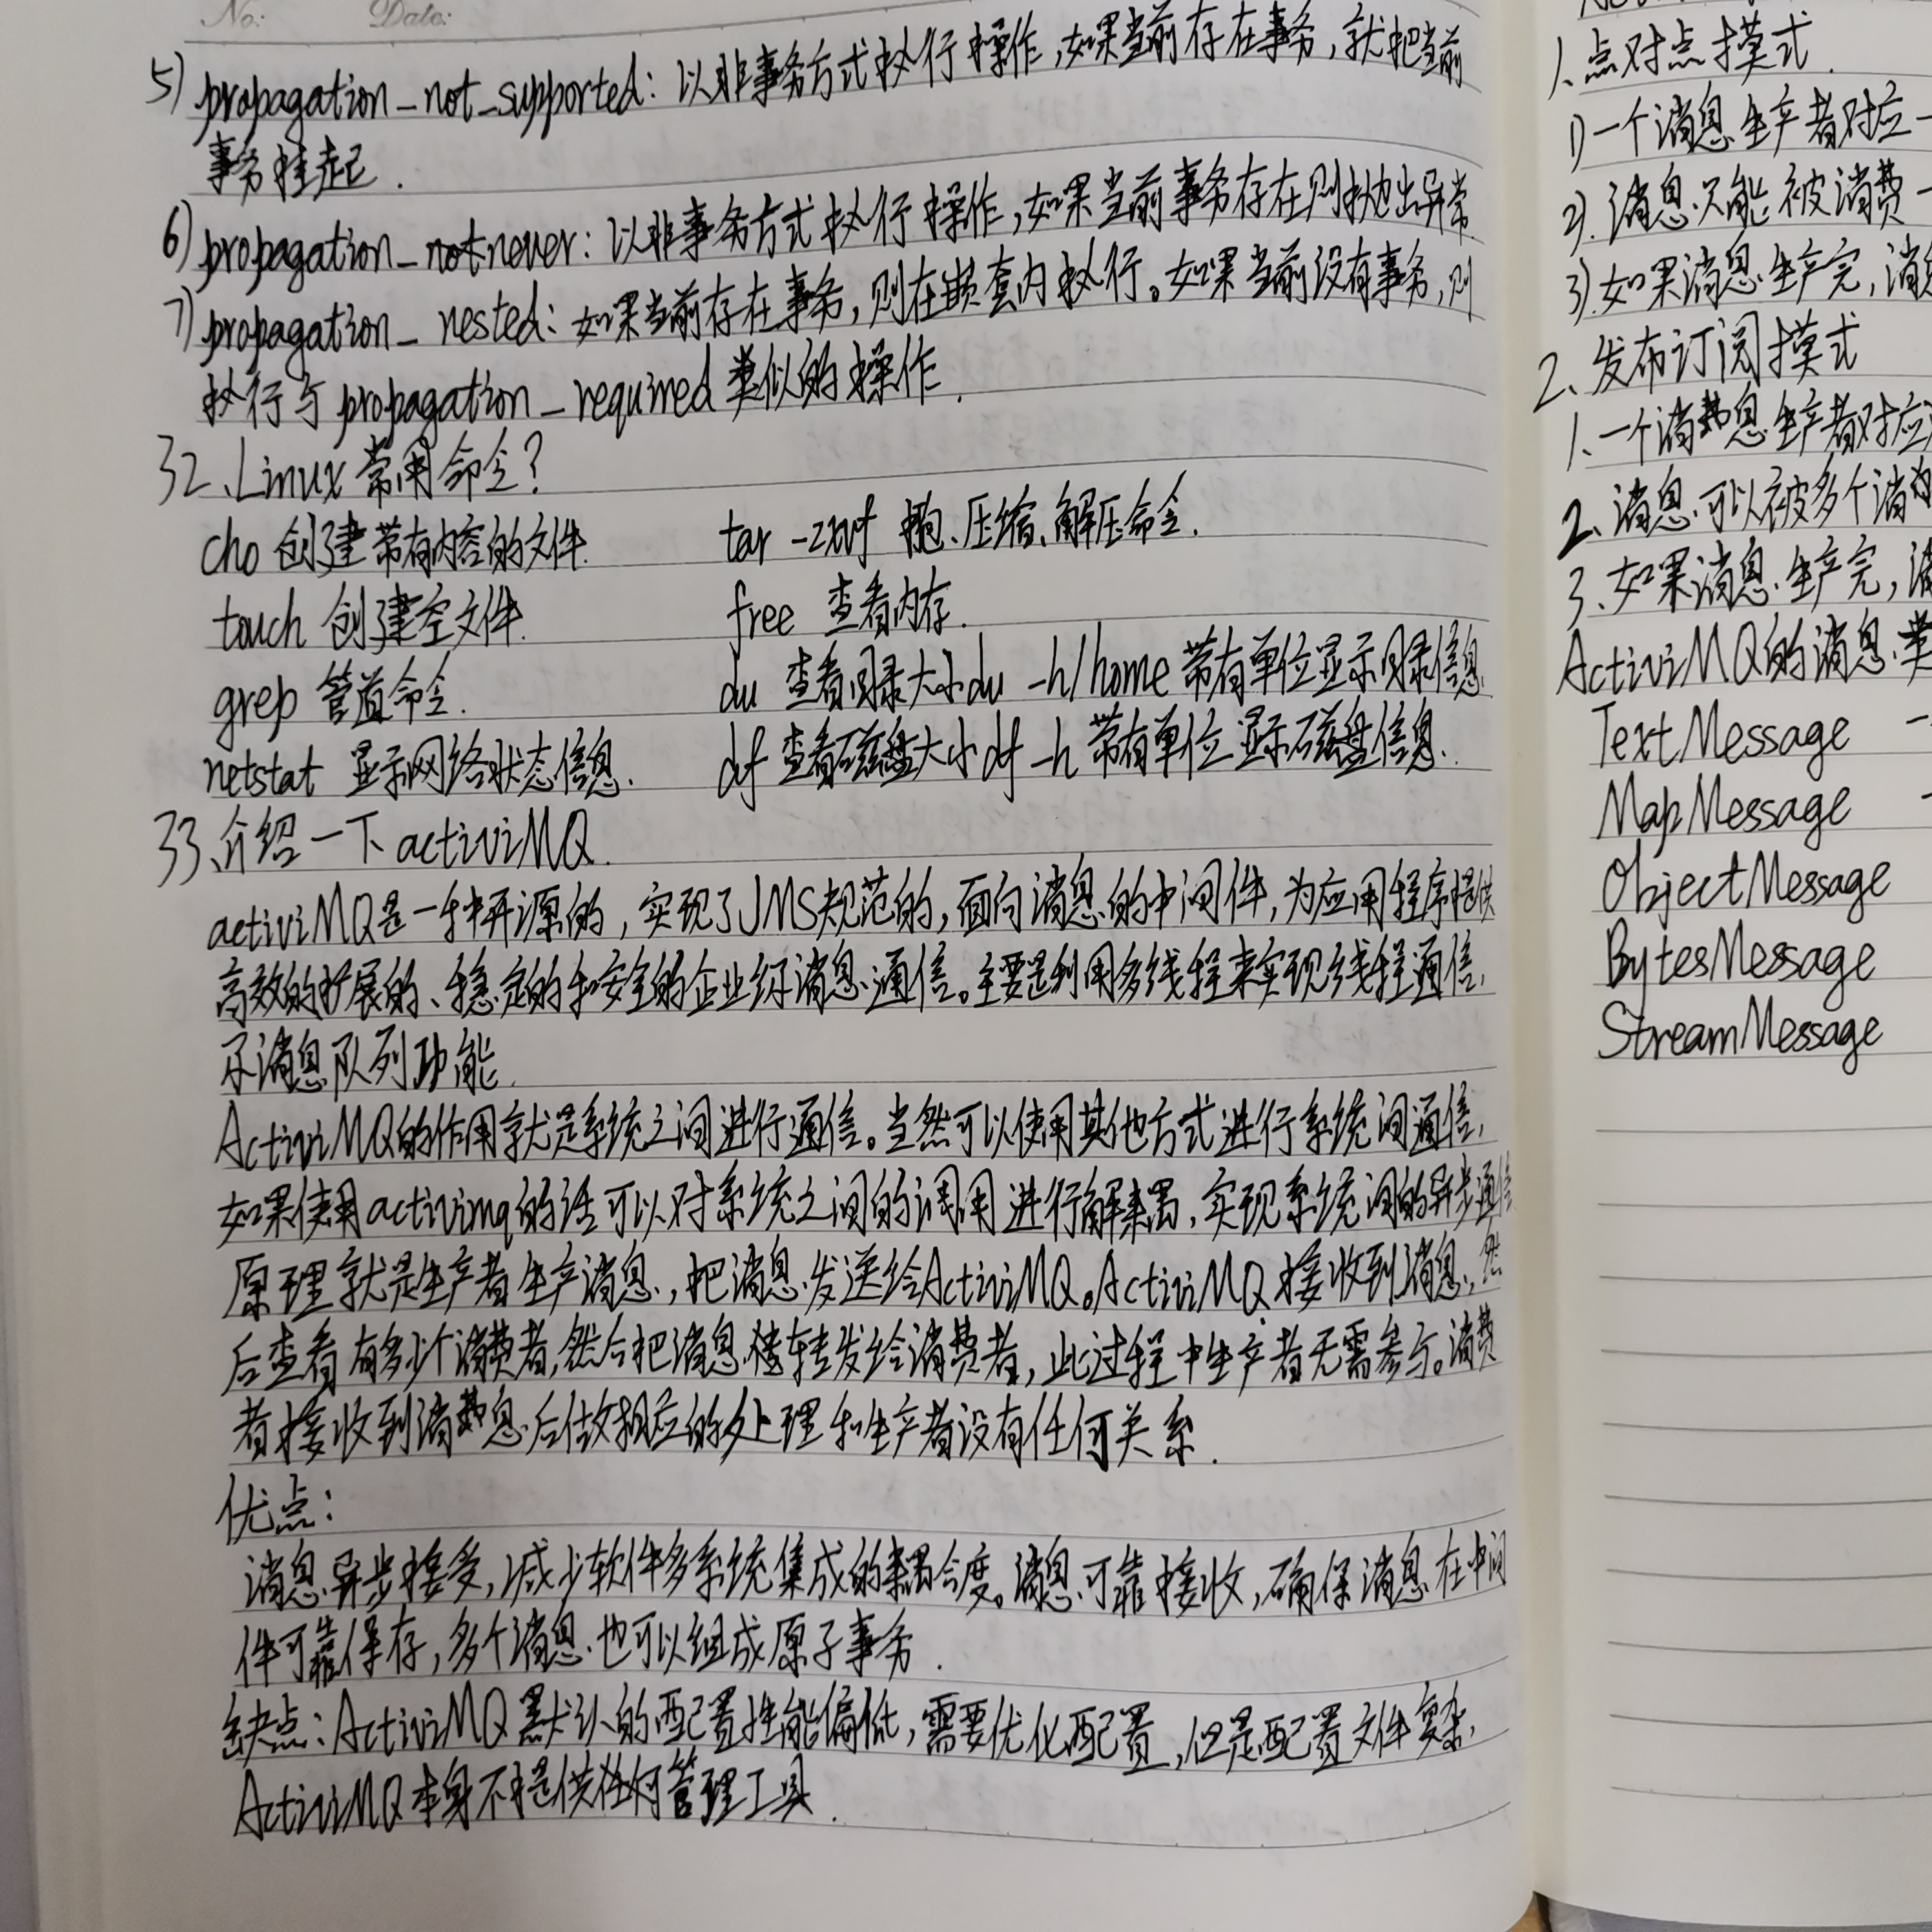 No: Date:
5) propagation_not_supported: 以非事务方式执行操作,如果当前存在事务,就把当前
事务挂起.
6) propagation_notnever: 以非事务方式执行操作,如果当前事务存在则抛出异常.
7) propagation_nested: 如果当前存在事务,则在嵌套内执行。如果当前没有事务,则
执行与propagation_required类似的操作.
32、Linux常用命令?
cho 创建带有内容的文件. tar -zxvf 打包、压缩、解压命令.
touch 创建空文件. free 查看内存.
grep 管道命令. du 查看目录大小du -h/home 带有单位显示目录信息
netstat 显示网络状态信息. df 查看磁盘大小df -h 带有单位显示磁盘信息.
33、介绍一下activiMQ.
activiMQ是一种开源的,实现了JMS规范的,面向消息的中间件,为应用程序提供
高效的扩展的、稳定的和安全的企业级消息通信。主要是利用多线程来实现线程通信,
及消息队列功能.
ActiviMQ的作用就是系统之间进行通信。当然可以使用其他方式进行系统间通信,
如果使用activimq的话可以对系统之间的调用进行解耦,实现系统间的异步通信
原理就是生产者生产消息,把消息发送给ActiviMQ。ActiviMQ接收到消息,然
后查看有多少个消费者,然后把消息转发给消费者,此过程中生产者无需参与。消费
者接收到消息后做相应的处理和生产者没有任何关系.
优点:
消息异步接受,减少软件多系统集成的耦合度。消息可靠接收,确保消息在中间
件可靠保存,多个消息也可以组成原子事务.
缺点:ActiviMQ默认的配置性能偏低,需要优化配置,但是配置文件复杂,
ActiviMQ本身不提供任何管理工具.
1、点对点模式.
1)一个消息生产者对应一
2).消息只能被消费一
3).如果消息生产完,消
2、发布订阅模式
1、一个消息生产者对应
2、消息可以被多个消
3、如果消息生产完,消
ActiviMQ的消息类
TextMessage
MapMessage
ObjectMessage
BytesMessage
StreamMessage